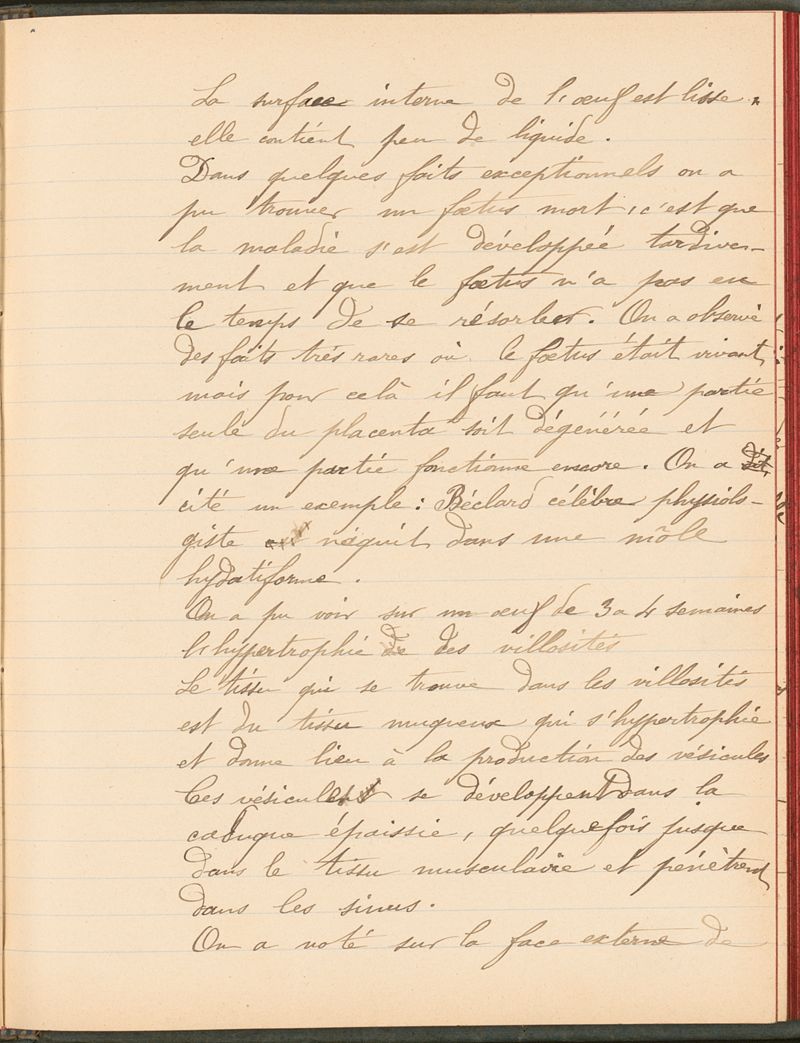 La surface interne de l'œuf est lisse,
elle contient peu de liquide.
Dans quelques faits exceptionnels on a
pu trouver un fœtus mort, c'est que
la maladie s'est développée tardive-
ment et que le fœtus n'a pas eu
le temps de se résorber. On a observé
des faits très rares où le fœtus était vivant
mais pour celà il faut qu'une partie
seule du placenta soit dégénérée et
qu'une partie fonctionne encore. On a dit
cité un exemple : Béclard célèbre physiolo-
giste naquit dans une môle
hydatiforme.
On a pu voir sur un œuf de 3 a 4 semaines
l'hypertrophie de des villosités
Le tissu qui se trouve dans les villosités
est du tissu muqueux qui s'hypertrophie
et donne lieu à la production des vésicules
Ces vésicules se développent dans la
caduque épaissie, quelquefois jusque
dans le tissu musculaire et pénètrent
dans les sinus.
On a noté sur la face externe de